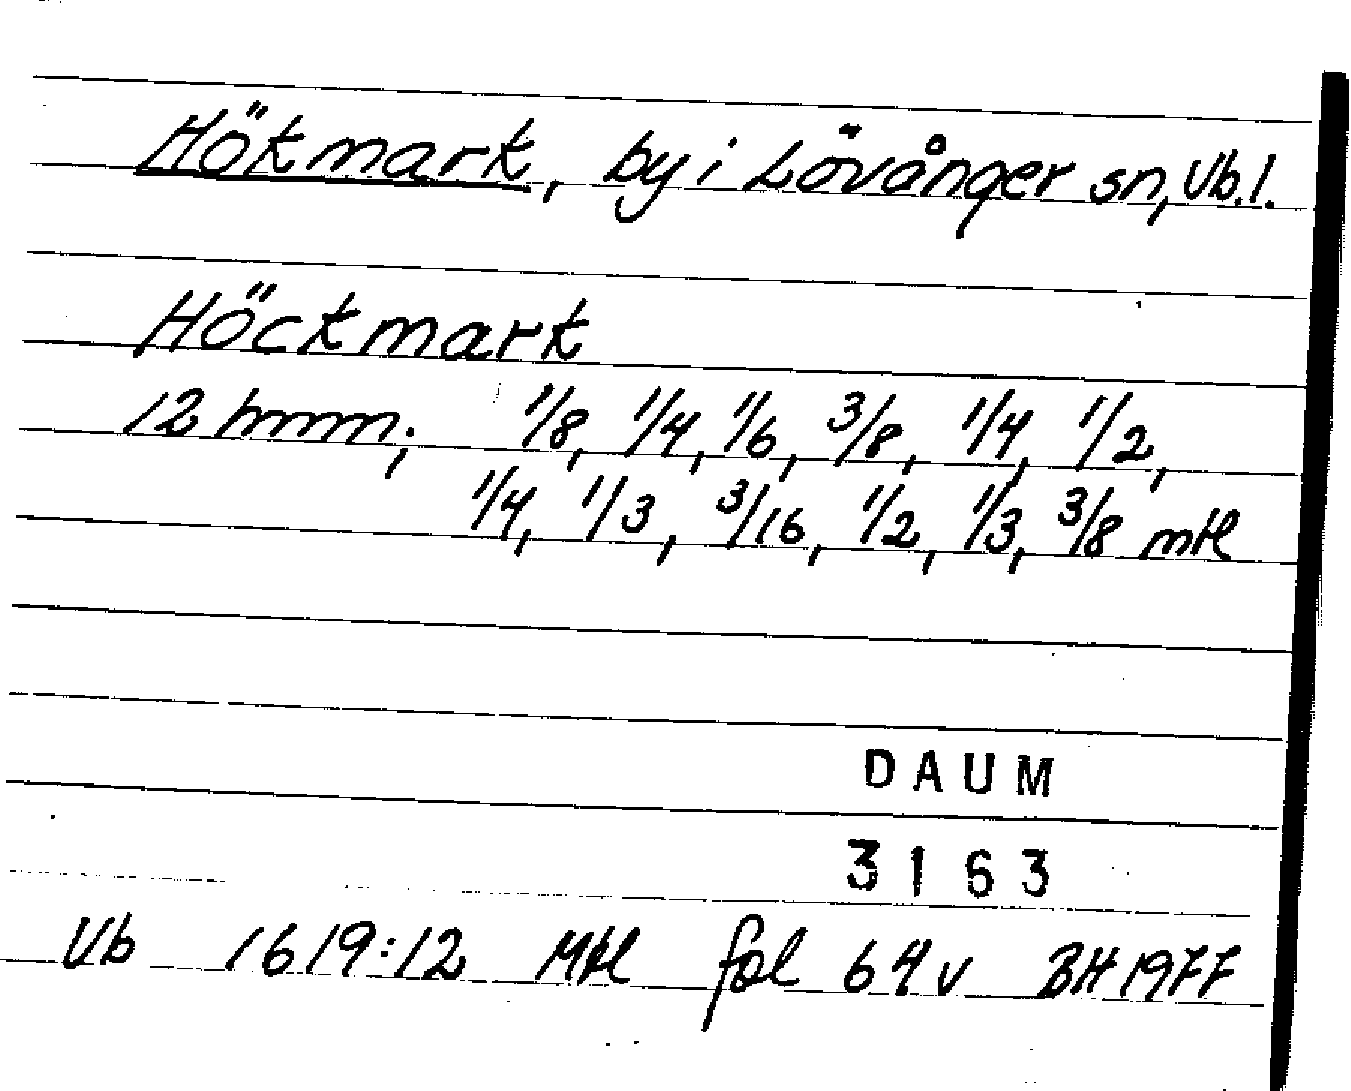 Hökmark, by i Lövånger sn, Vb.l.
Höckmark
12 hmn; 1/8, 1/4, 1/6, 3/8, 1/4, 1/2,
1/4, 1/3, 3/16, 1/2, 1/3, 3/8 mtl
DAUM
3163
Vb 1619:12 Mtl fol 64v BH 1977